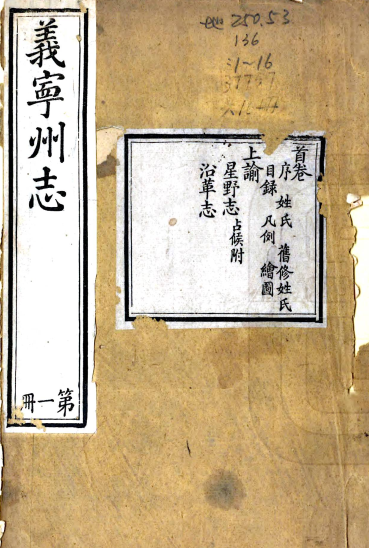 義寧州志
第一冊
首卷
序 姓氏 舊修姓氏
目錄 凡例 繪圖
上諭
星野志 占候附
沿革志
250.53
136
:1~16